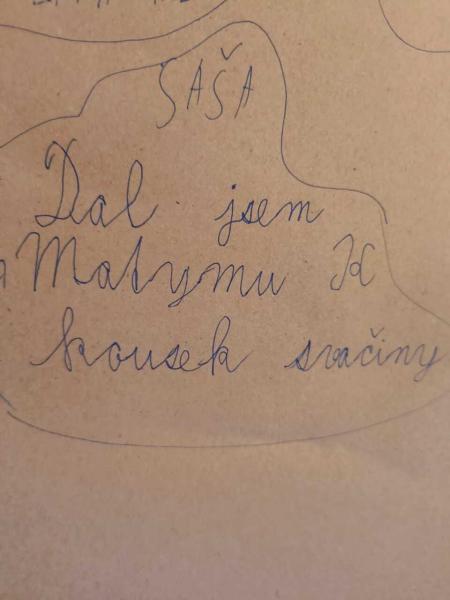 SAŠA
Dal jsem
Matymu K
kousek svačiny